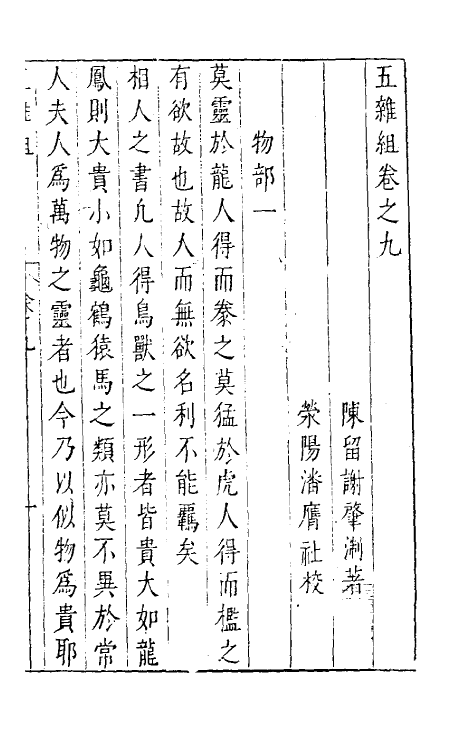 五雜組卷之九
陳留謝肇淛著
滎陽潘膺祉校
物部一
莫靈於龍人得而豢之莫猛於虎人得而檻之
有欲故也故人而無欲名利不能羈矣
相人之書凢人得鳥獸之一形者皆貴大如龍
鳳則大貴小如龜鶴猿馬之類亦莫不異於常
人夫人爲萬物之靈者也今乃以似物爲貴耶